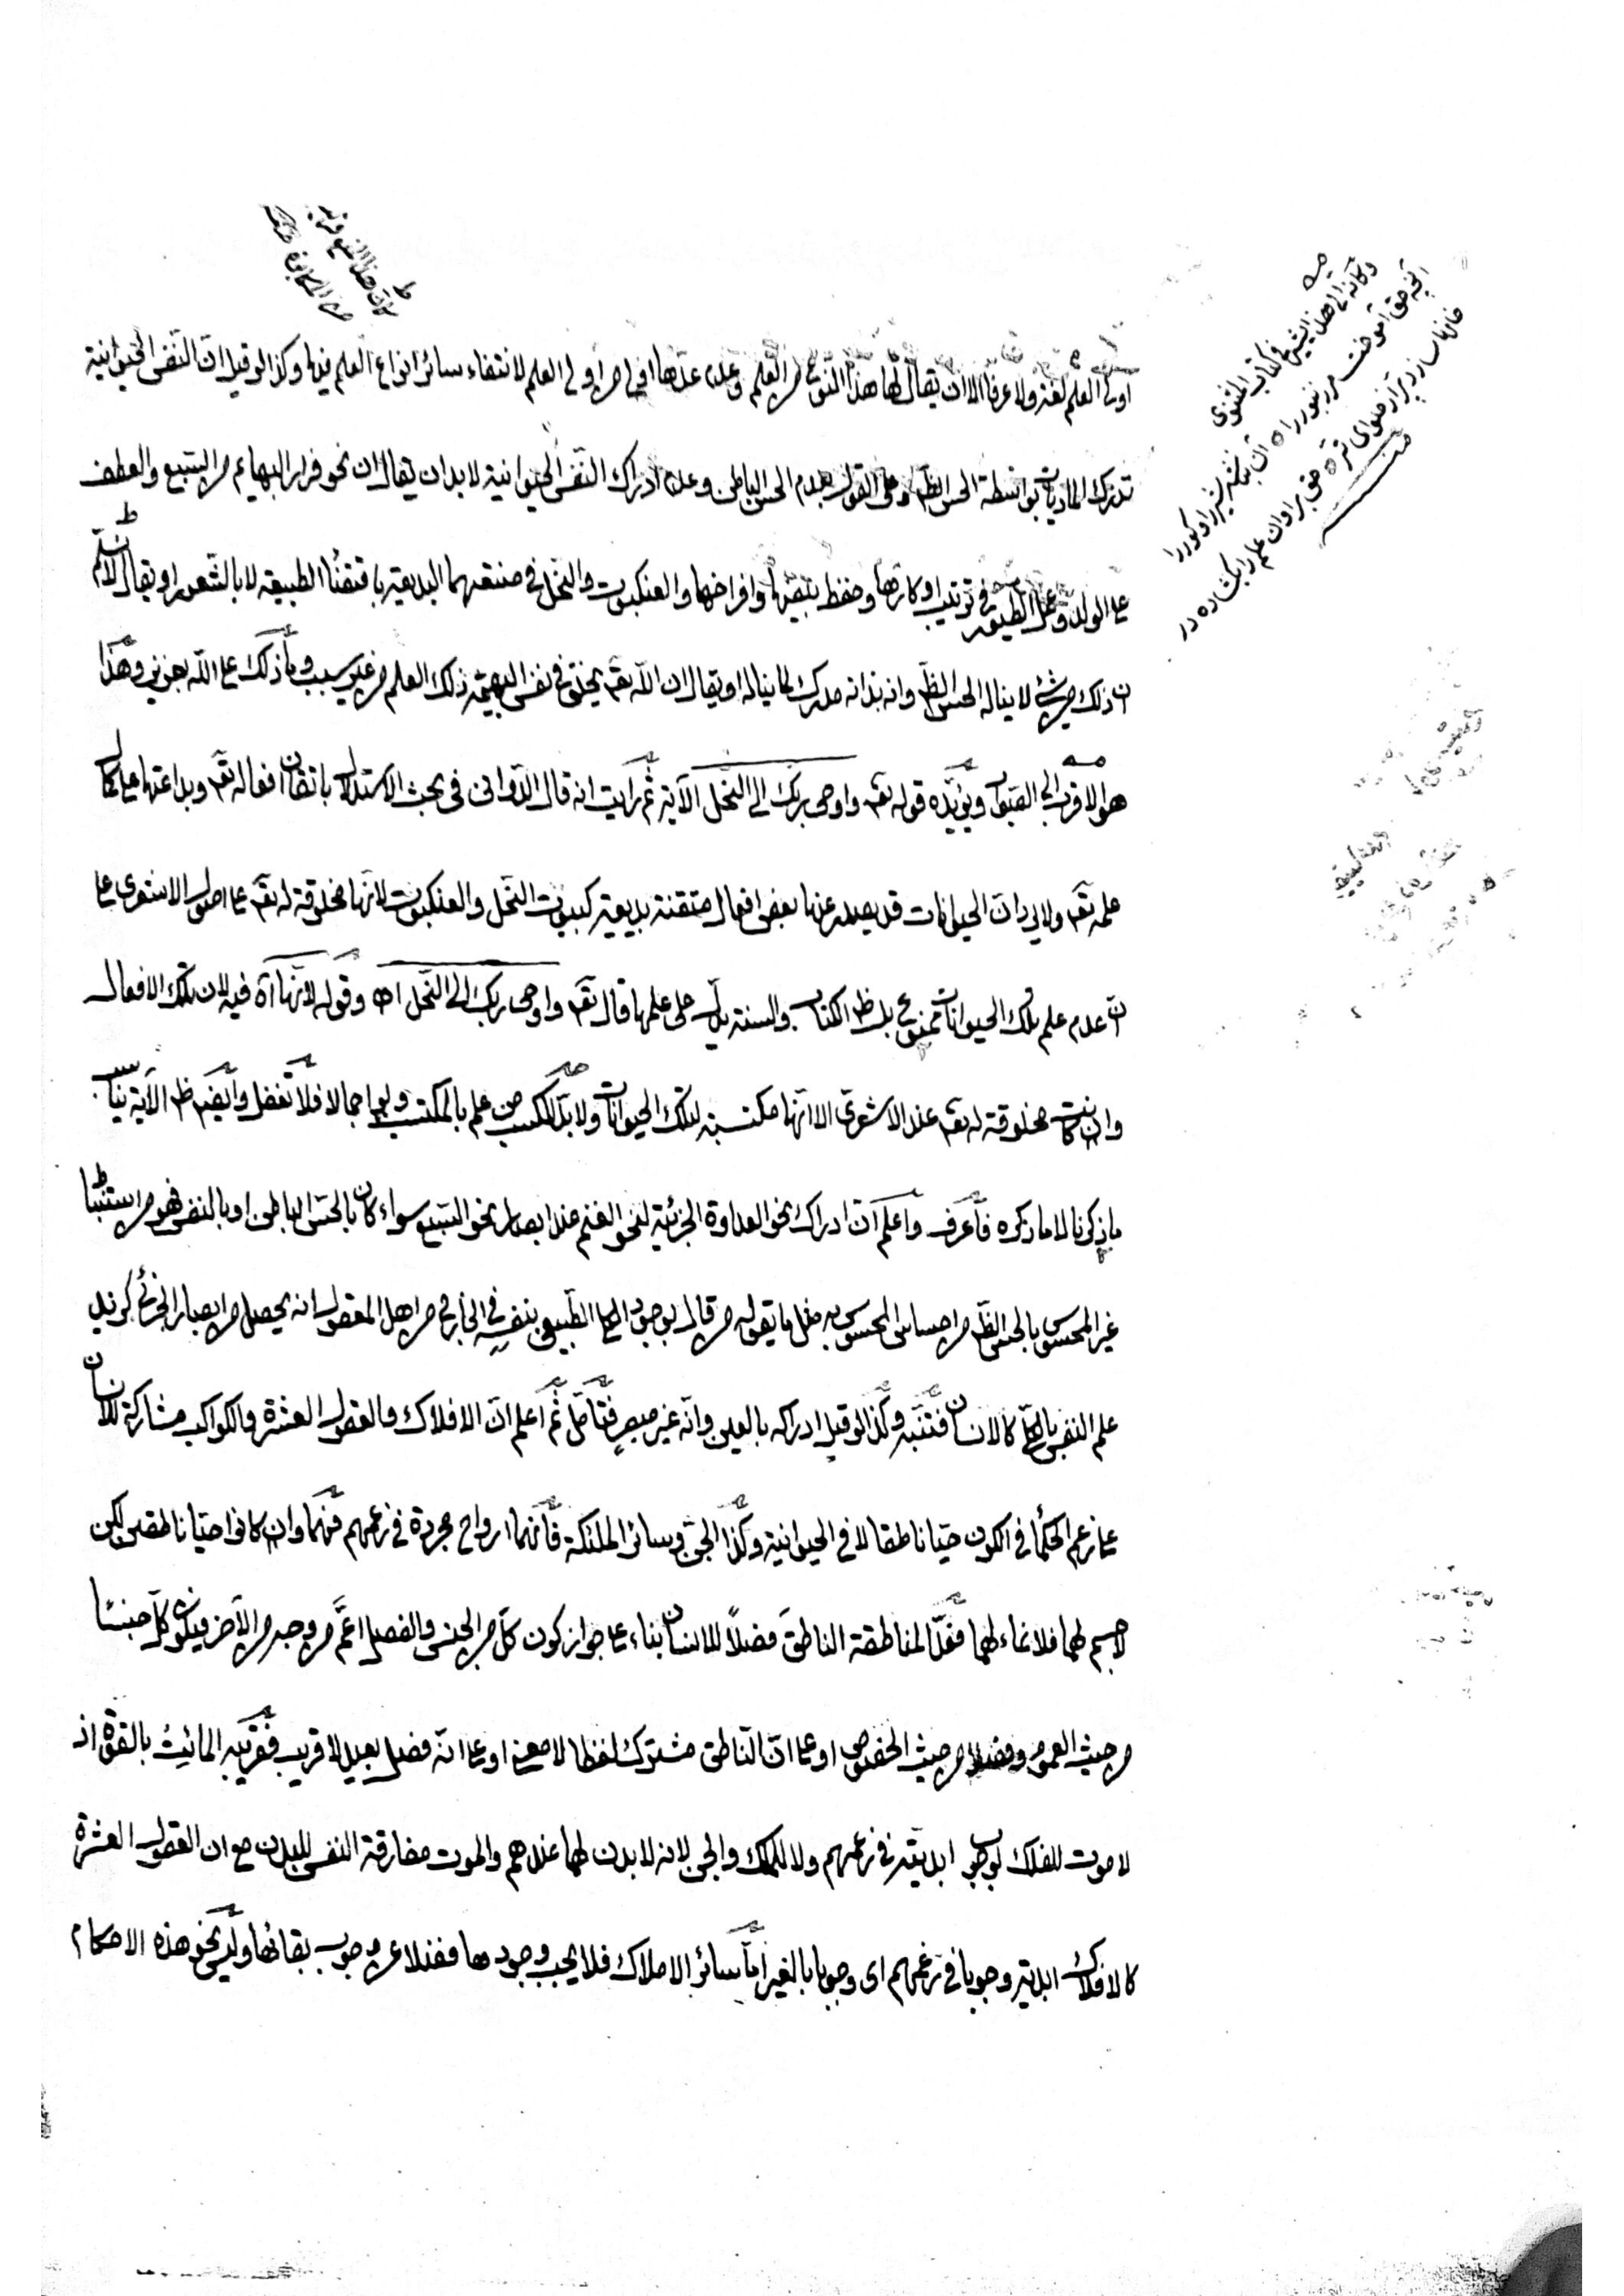 اولى العلم لغة ولا عرفا الا ان يقال لها هذا النوع من العلم وعدم عدها فى من اولى العلم لانتفاء سائر انواع العلم فيها وكذا لو قيل ان النفس الحيوانية
تدرك الماديات بواسطة الحس الظ وعلى القول بعدم الحس الباطن وعدم ادراك النفس الحيوانية لابد ان يقال ان نحو فرار البهايم من السبع والعطف
على الولد وعمل الطيور فى ترتيب اوكارها وحفظ بيضها وافراخها والعنكبوت والنحل فى صنعتهما البديعة باقتضاء الطبيعة لا بالشعور او يقال لا نسلم
ان ذلك من شئ لا يناله الحس الظ وانه بذاته مدرك لما يناله او يقال ان الله تع يخلق فى نفس البهيمة ذلك العلم من غير سبب وما ذلك على الله بعزيز وهذا
هو الاقرب الى القبول ويؤيده قوله تع واوحى ربك الى النحل الآية ثم رايت انه قال الدوانى فى بحث الاستدلال باتقان افعاله تع وبداعتها على كمال
علمه تع ولا يرد ان الحيوانات قد يصدر عنها بعض افعال متقنة بديعة كبيوت النحل والعنكبوت لانها مخلوقة له تع على اصول الاشعرى على
ان عدم علم تلك الحيوانات ممنوع بل ظ الكتاب والسنة يدل على علمها قال تع واوحى ربك الى النحل اه وقوله لانها آه فيه لان تلك الافعال
وان كانت مخلوقة له تع عند الاشعرى الا انها مكتسبة لتلك الحيوانات ولا بد للمكتسب من علم بالمكتسب ولو اجمالا فلا تغفل وايض ظ الآية يناسب
ما ذكرنا لا ما ذكره فاعرف واعلم ان ادراك نحو العداوة الجزئية لنحو الغنم عند ابصار نحو السبع سواء كان بالحس الباطن او بالنفس فهو من استنباط
غير المحسوس بالحس الظ من احساس المحسوس به مثل ما يقوله من قال بوجود الكلى الطبيعى بنفسه فى الخارج من اهل المعقول انه يحصل من ابصار الجزئى كزيد
علم النفس بالكلى كالانسان فتنبه وكذا لو قيل ادراكه بالعين وانه غير مبصر فتامل ثم اعلم ان الافلاك والعقول العشرة والكواكب مشاركة للانسان
على زعم الحكما فى الكون حيا ناطقا لا فى الحيوانية وكذا الجن وسائر الملئكة فانهما ارواح مجردة فى زعمهم فهما وان كانوا حيا ناطقين لكن
لا جسم لهما فلا نماء لهما فعد المناطقة الناطق فصلا للانسان بناء على جواز كون كل من الجنس والفصل اعم من وجه من الآخر فيكون كل جنسا
من حيث العموم وفصلا من حيث الخصوص او على ان الناطق مشترك لفظا لا معنى او على انه فصل بعيد لا قريب فقريبه المائت بالقوة اذ
لا موت للفلك لوجوب ابديته فى زعمهم ولا للملك والجن لانه لا بدن لهما عندهم والموت مفارقة النفس للبدن مع ان العقول العشرة
كالافلاك ابدية وجوبا فى زعمهم اى وجوبا بالغير اما سائر الاملاك فلا يجب وجودها فضلا عن وجوب بقائها وليس نحو هذه الاحكام
وكانه الى هذا يشير فى كتاب المثنوى
آنچه حق آموخت مر زنبور را ه آن نباشد شير را وكور را
خانها سازد پر از حلواى تر ه حق بر او آن علم را بكشاده در
منه